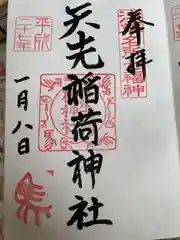 奉拝
矢先稲荷神社
平成三十年
一月八日